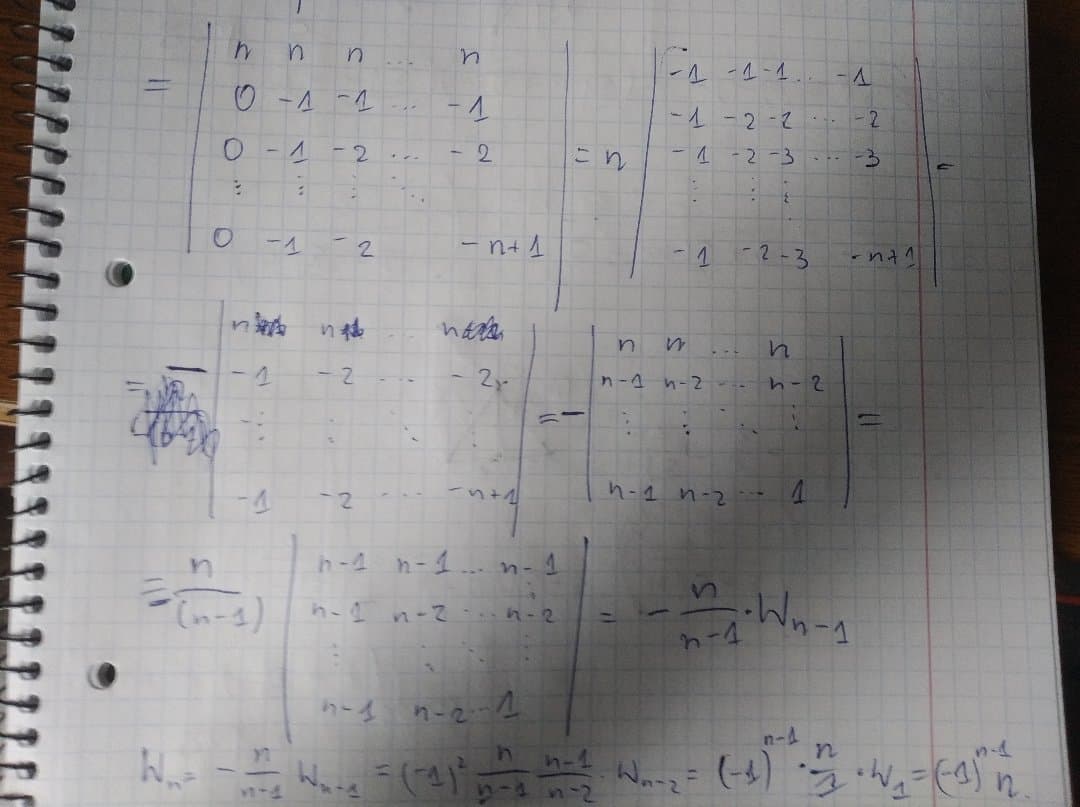 n n n ... n
0 -1 -1 ... -1
= 0 -1 -2 ... -2 = n
⋮ ⋮ ⋮ ⋱
0 -1 -2 -n+1
-1 -1 -1 ... -1
-1 -2 -2 ... -2
-1 -2 -3 ... -3 =
⋮ ⋮ ⋮
-1 -2 -3 -n+1
n n ... n
= - -1 -2 ... -2 = -
⋮ ⋮ ⋱ ⋮
-1 -2 ... -n+1
n n ... n
n-1 n-2 ... n-2 =
⋮ ⋮ ⋱ ⋮
n-1 n-2 ... 1
n-1 n-1 ... n-1
= - n/(n-1) n-1 n-2 ... n-2 = - n/n-1 · W_{n-1}
⋮ ⋱ ⋱ ⋮
n-1 n-2 ... 1
W_n = - n/n-1 W_{n-1} = (-1)^2 n/n-1 n-1/n-2 · W_{n-2} = (-1)^{n-1} · n/1 · W_1 = (-1)^{n-1} n.